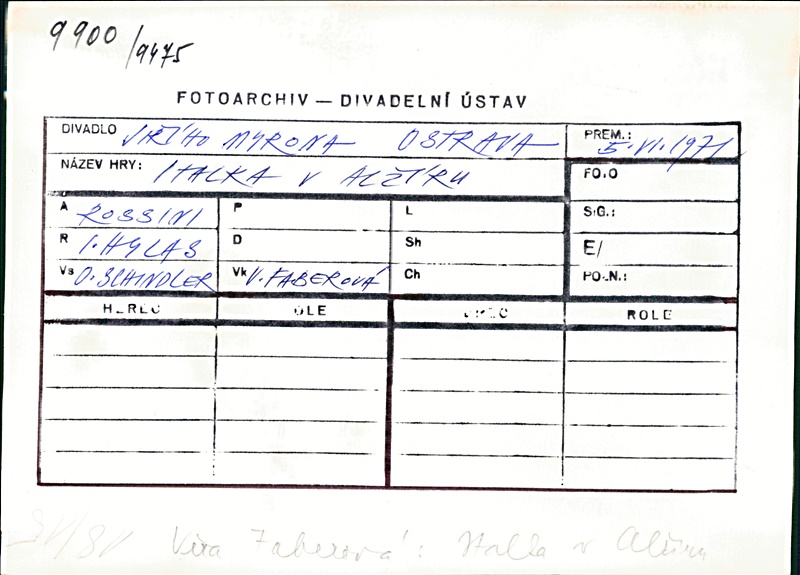 9900/9475
FOTOARCHIV — DIVADELNÍ ÚSTAV
DIVADLO JIŘÍHO MYRONA OSTRAVA PREM.: 5.VI.1971
NÁZEV HRY: ITALKA V ALŽÍRU FOTO
A ROSSINI P L SIG.:
R I. HYLAS D Sh E/
Vs O. SCHINDLER Vk V. FABEROVÁ Ch POL.N.:
HEREC ROLE HEREC ROLE
Věra Faberová: Italka v Alžíru